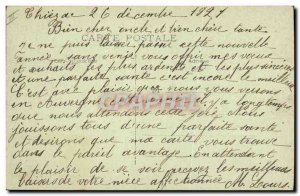 Thiers le 26 décembre 1927
Bien cher oncle et bien chère tante
CARTE POSTALE
Je ne puis laisser passer cette nouvelle
année sans venir vous offrir mes vœux
et souhaits les plus ardents et les plus sincères
et une parfaite santé c'est encore le meilleur
C'est avec plaisir que nous vous verrons
en Auvergne il y a longtemps
que nous attendons cette joie. Nous
jouissons tous d'une parfaite santé
et désirons que ma carte vous trouve
dans le pareil avantage. En attendant
le plaisir de se voir recevez les meilleurs
baisers de votre nièce affectionnée
M. Louis